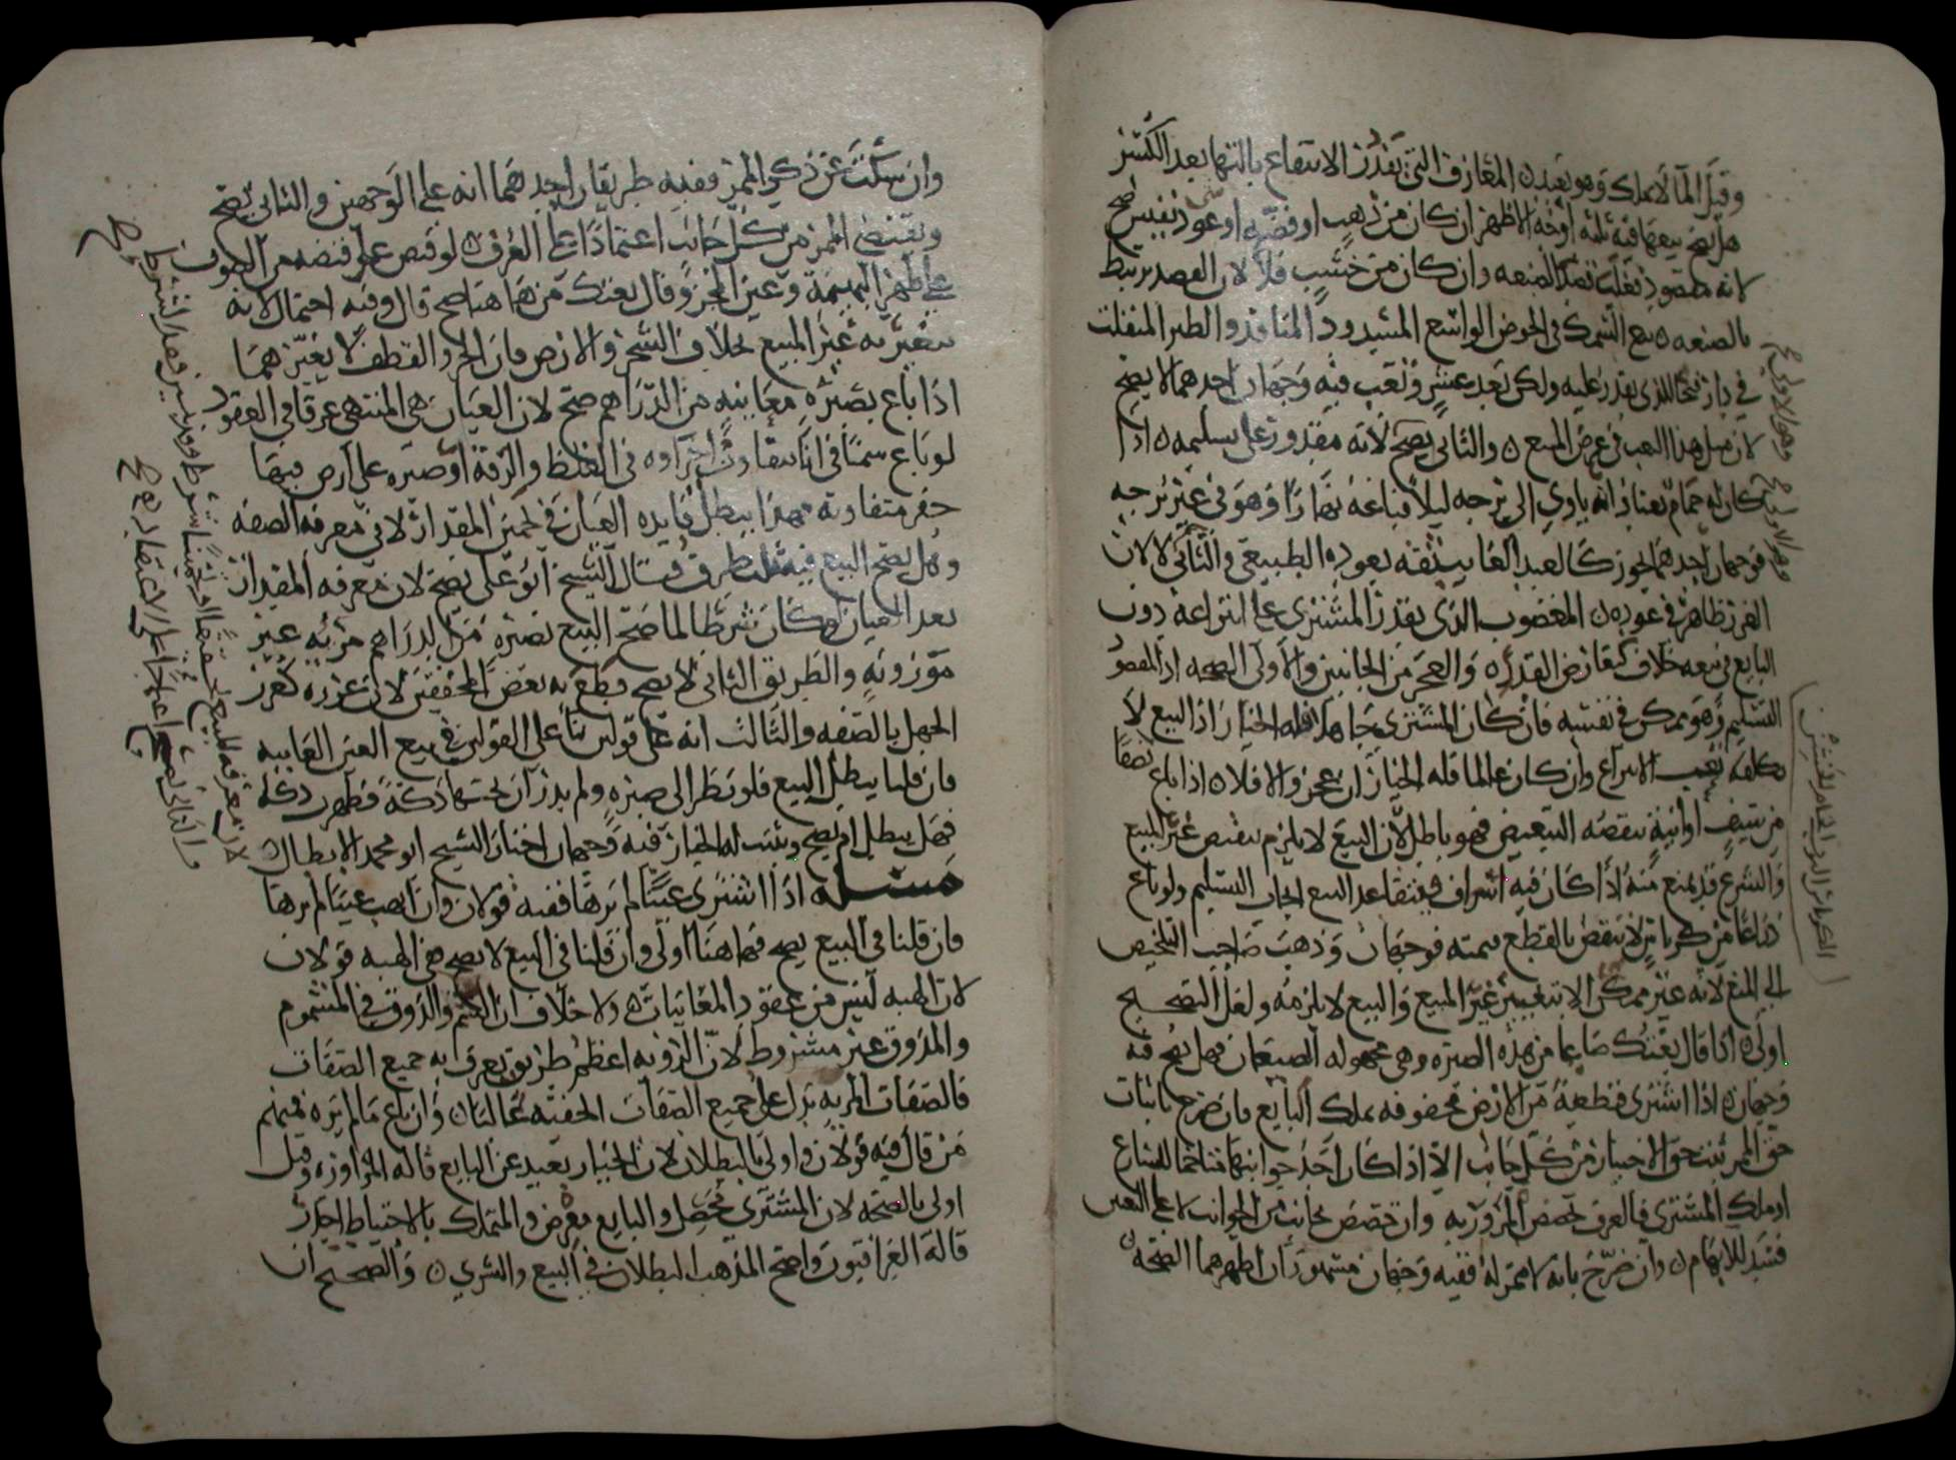 وقيل المآلا يملك وهو بعيد ن المعازف التي يقدر الانتفاع بآلتها بعد الكسر
هل يصح بيعها فيه ثلثة اوجه الاظهر ان كان من ذهب او فضة او عود نفيس صح
لانه مقصود تغلب الصنعه وان كان من خشب فلا لان القصد يرتبط
بالصنعه ن بيع السمك في الحوض الواسع المسدود المنافذ والطير المنفلت
في دار فيحا الذي يقدر عليه ولكن بعد عسر وتعب فيه وجهان احدهما لا يصح
لان مثل هذا التعب في غرض المبيع ن والثاني يصح لانه مقدور على تسليمه ن اذا
كان له حمام يعتاد انه ياوي الى برجه ليلا فباعه نهارا وهو في غير برجه
فوجهان احدهما يجوز كالعبد الغايب ثقه بعوده الطبيعي والثاني لا لان
الغرر ظاهر في عوده ن المغصوب الذي يقدر المشتري على انتزاعه دون
البايع في بيعه خلاف كتعارض القدره والعجز من الجانبين والاولى الصحه اذ المقصود
التسليم وهو ممكن في نفسه فان كان المشتري جاهلا فله الخيار اذ البيع لا
يكلفه تعب الانتزاع وان كان عالما فله الخيار ان عجز والا فلا ن اذا باع نصفا
من سيف او آنية ينقصه التبعيض فهو باطل لان البيع لا يلزم بنقص غير المبيع
والشرع قد يمنع منه اذا كان فيه اسراف فيتقاعد البيع ايجاب التسليم ولو باع
ذراعا من كرباس لا تنقص بالقطع قيمته فوجهان وذهب صاحب التلخيص
الى المنع لانه غير ممكن الا بتغيير غير المبيع والبيع لا يلزمه ولعل التصحيح
اولى ن اذا قال بعتك صاعا من هذه الصبره وهي مجهوله الصيعان فهل يصح فيه
وجهان ن اذا اشترى قطعة من الارض محفوفه بملك البايع فان صرح باثبات
حق الممر ثبت حق الاجتياز من كل جانب الا اذا كان احد جوانبها متاخما للشارع
او ملك المشتري فالعرف يخصص المرور به وان خصص بجانب من الجوانب لا على التعيين
فسد للابهام ن وان صرح بانه لا ممر له ففيه وجهان مشهوران اظهرهما الصحه ن
وهو الاولى صح
وهو الاولى صح
الكرباس الثوب الخام
وان سكت عن ذكر الممر ففيه طريقان احدهما انه على الوجهين والثاني يصح
ويقتضي الممر من كل جانب اعتمادا على العرف ن لو قبض على قبضه من الصوف
على ظهر البهيمة وعين المجز وقال بعتك من هاهنا صح قال وفيه احتمال لانه
يتغير به غير المبيع بخلاف الشجر والارض فان الجز والقطف لا يغيرهما
اذا باع بصبره معاينه من الدراهم صح لان العيان هي المنتهى عرفا في العقود
لو باع سمنا في انا يتفاوت اجزاوه في الغلظ والرقة او صبره على ارض فيها
حفر متفاوته فهذا يبطل فايده العيان في تخمين المقدار لا في معرفه الصفه
وهل يصح البيع فيه ثلث طرق قال الشيخ ابو علي يصح لان معرفه المقدار
بعد العيان لو كان شرطا لما صح البيع بصبره من الدراهم مرئيه غير
موزونه والطريق الثاني لا يصح قطع به بعض المحققين لان غرره كغرر
الجهل بالصفه والثالث انه على قولين بنا على القولين في بيع العين الغايبه
فان قلنا يبطل البيع فلو نظر الى صبره ولم يدر ان تحتها دكة فظهرت دكه
فهل يبطل ام يصح ويثبت له الخيار فيه وجهان اختار الشيخ ابو محمد الابطال
مسله اذا اشترى عينا لم يرها ففيه قولان وان وهب عينا لم يرها
فان قلنا في البيع يصح فهاهنا اولى وان قلنا في البيع لا يصح ففي الهبه قولان
لان الهبه ليس من عقود المغابنات ن ولا خلاف ان الشم والذوق في المشموم
والمذوق غير مشروط لان الرؤيه اعظم طريق يعرف به جميع الصفات
فالصفات المرئيه تدل على جميع الصفات الخفيه غالبا ن وان باع ما لم يره فمنهم
من قال فيه قولان واولى بالبطلان لان الخيار بعيد عن البايع قاله المراوزه وقيل
اولى بالصحه لان المشتري محصل والبايع معرض والمتملك بالاحتياط اجدر
قاله العراقيون واصح المذهب البطلان في البيع والشرى ن والصحيح ان